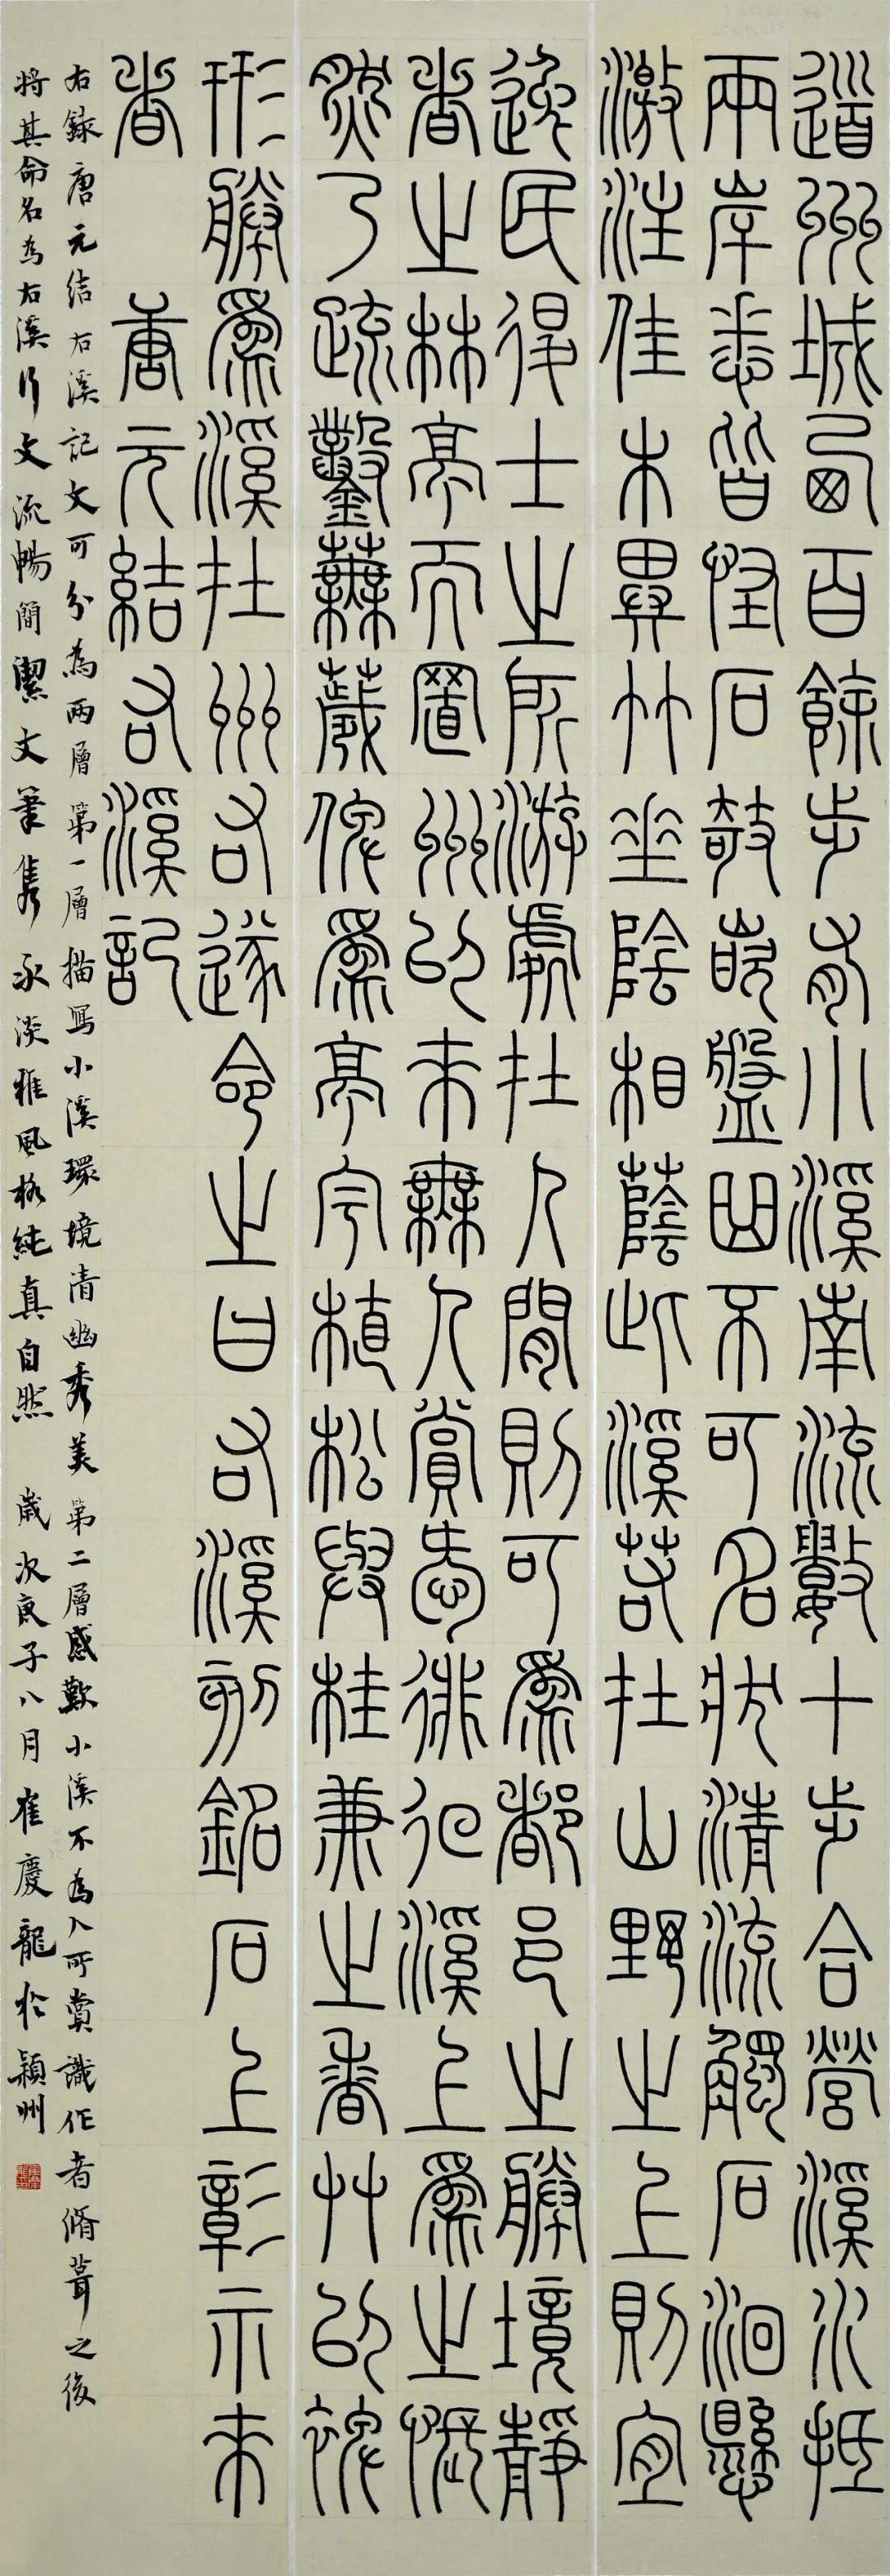 道州城西百餘步有小溪南流數十步合營溪水抵
兩岸悉皆怪石攲嵌盤曲不可名狀清流觸石洄懸
激注佳木異竹垂陰相蔭此溪若在山野之上則宜
逸民得士之所游處在人間則可為都邑之勝境靜
者之林亭而置州以來無人賞愛徘徊溪上為之悵
然乃疏鑿蕪穢俾為亭宇植松與桂兼之香草以裨
形勝為溪在州右遂命之曰右溪刻銘石上彰示來
者 唐元結右溪記
右錄唐元結右溪記文可分為兩層第一層描寫小溪環境清幽秀美第二層感歎小溪不為人所賞識作者脩葺之後
將其命名為右溪行文流暢簡潔文筆雋永淡雅風格純真自然 歲次庚子八月崔慶龍於潁州